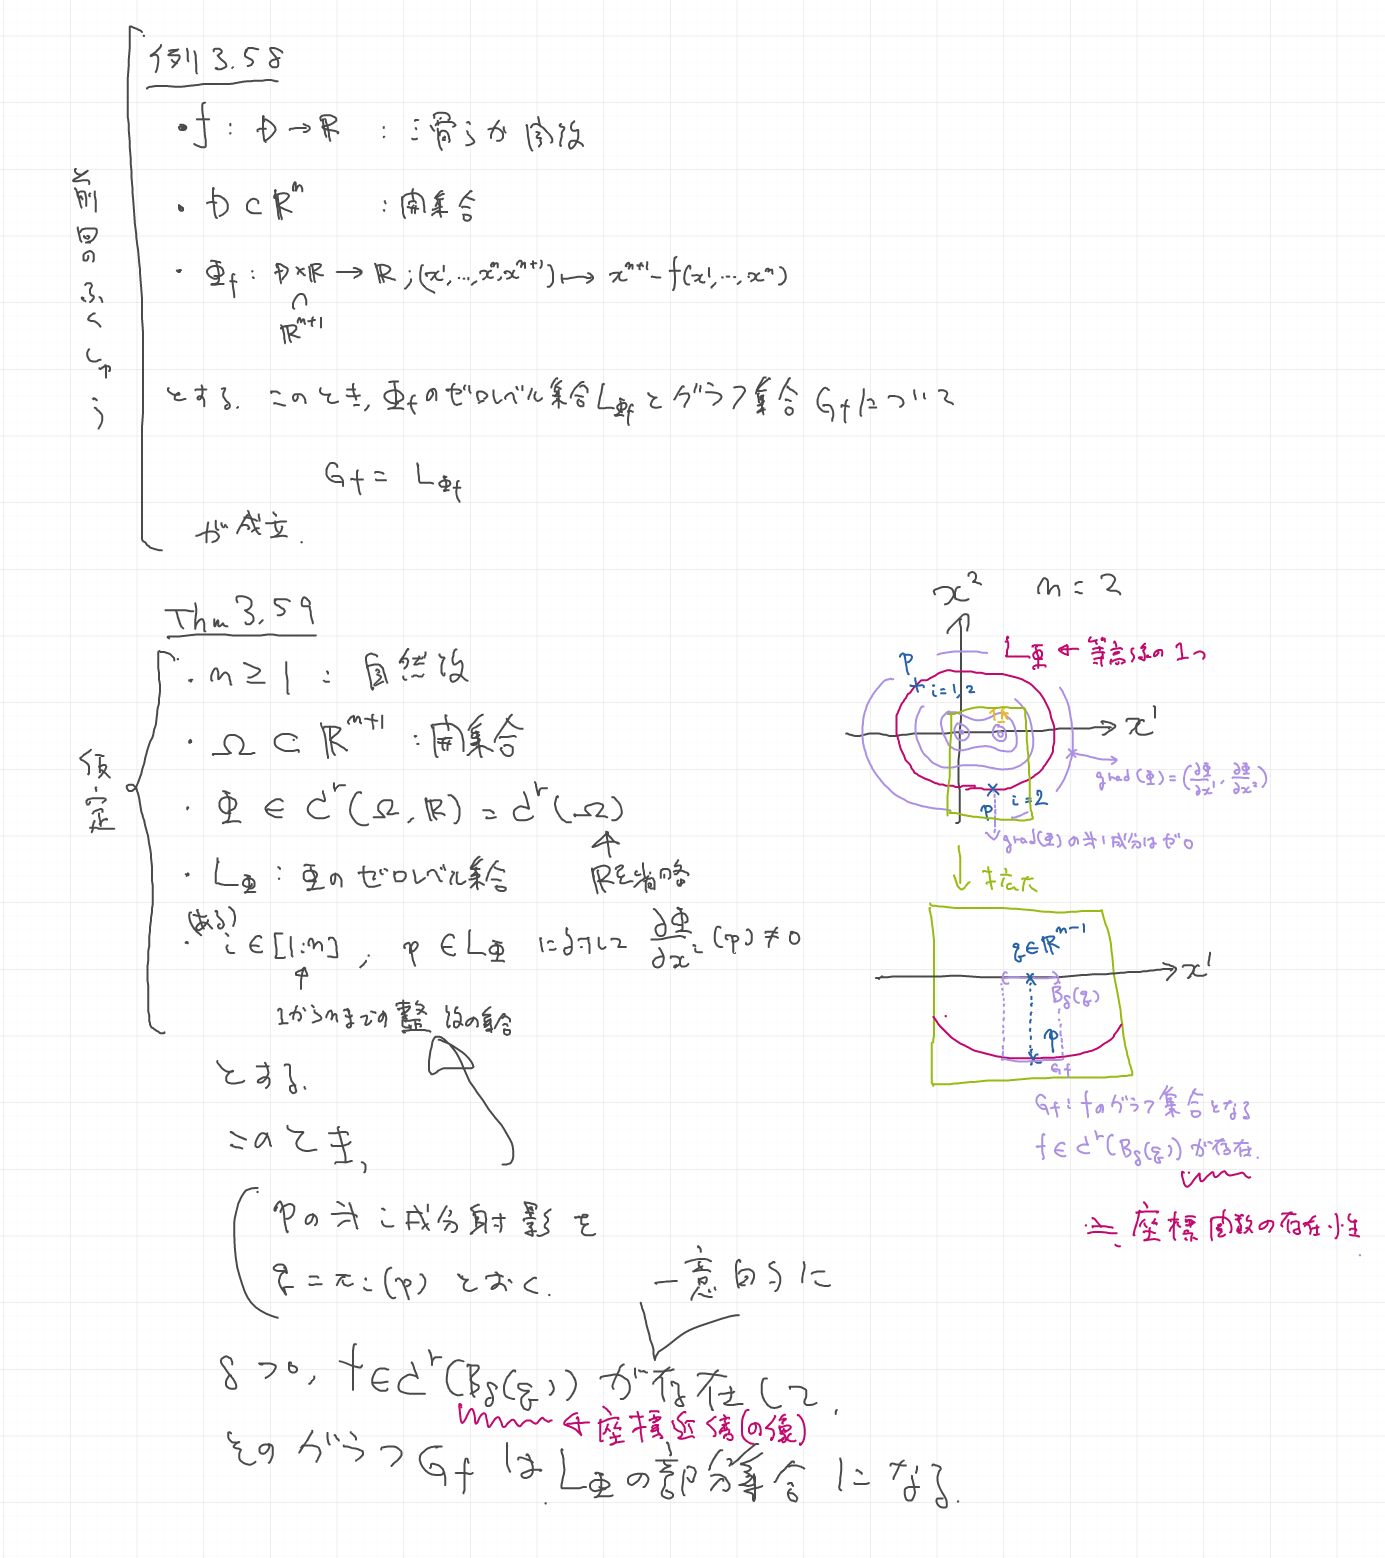 前回のふくしゅう
例 3.58
・f : D → R : 滑らか関数
・D ⊂ R^n : 開集合
・Φ_f : D×R → R ; (x^1, ..., x^n, x^{n+1}) ↦ x^{n+1} - f(x^1, ..., x^n)
∩
R^{n+1}
とする. このとき, Φ_f のゼロレベル集合 L_{Φ_f} とグラフ集合 G_f について
G_f = L_{Φ_f}
が成立.
Thm 3.59
仮定
・n ≥ 1 : 自然数
・Ω ⊂ R^{n+1} : 開集合
・Φ ∈ C^r(Ω, R) = C^r(Ω)
・L_Φ : Φのゼロレベル集合
↑ Rを省略
(ある)
・i ∈ [1:n], p ∈ L_Φ に対して ∂Φ/∂x^i (p) ≠ 0
↑
1からnまでの整数の集合
とする.
このとき,
pの第i成分射影を
q = π_i(p) とおく.
一意的に
δ > 0, f ∈ C^r(B_δ(q)) が存在して,
← 座標近傍(の像)
そのグラフ G_f は L_Φ の部分集合になる.
x^2 n = 2
L_Φ ← 等高線の1つ
p
i=1,2
x^1
grad(Φ) = (∂Φ/∂x^1, ∂Φ/∂x^2)
p i=2
grad(Φ)の第1成分はゼロ
↓ 拡大
q ∈ R^{n-1}
x^1
B_δ(q)
p
G_f
G_f : fのグラフ集合となる
f ∈ C^r(B_δ(q)) が存在.
≒ 座標関数の存在性